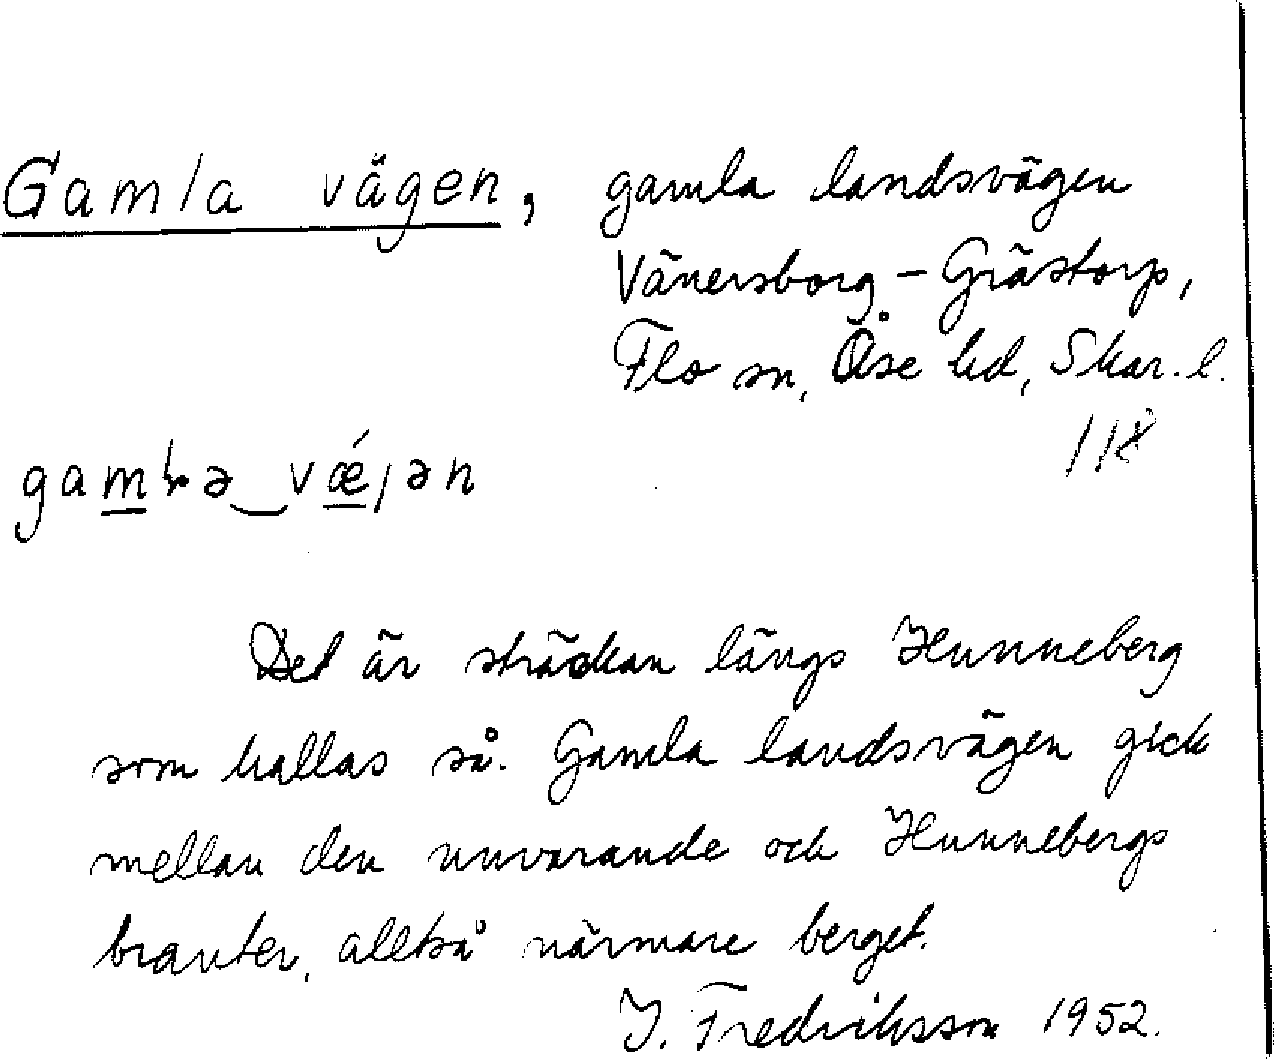 Gamla vägen, gamla landsvägen
Vänersborg – Grästorp,
Flo sn, Åse hd, Skar. l.
118
gamɽə‿vǽjən
Det är sträckan längs Hunneberg
som kallas så. Gamla landsvägen gick
mellan den nuvarande och Hunnebergs
branter, alltså närmare berget.
I. Fredriksson 1952.